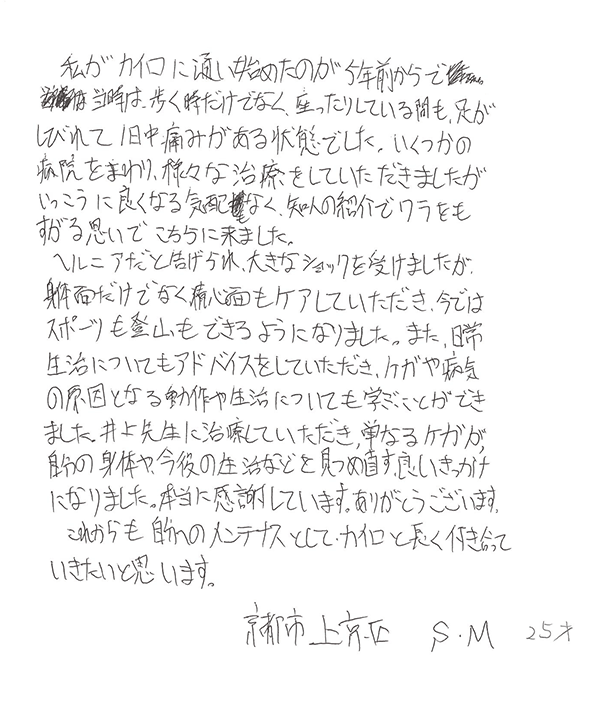 私がカイロに通い始めたのが今年前からで
当時は、歩く時だけでなく、座ったりしている間も、足が
しびれて1日中痛みがある状態でした。いくつかの
病院をまわり、様々な治療をしていただきましたが
いっこうに良くなる気配もなく、知人の紹介でワラをも
すがる思いでこちらに来ました。
ヘルニアだと告げられ、大きなショックを受けましたが、
身体面だけでなく精心面もケアしていただき、今では
スポーツも登山もできるようになりました。また、日常
生活についてもアドバイスをしていただき、ケガや病気
の原因となる動作や生活についても学ぶことができ
ました。井上先生に治療していただき、単なるケガが、
自分の身体や、今後の生活などを見つめ直す、良いきっかけ
になりました。本当に感謝しています。ありがとうございます。
これからも自分へのメンテナスとして、カイロと長く付き合って
いきたいと思います。
京都市上京区 S.M 25才